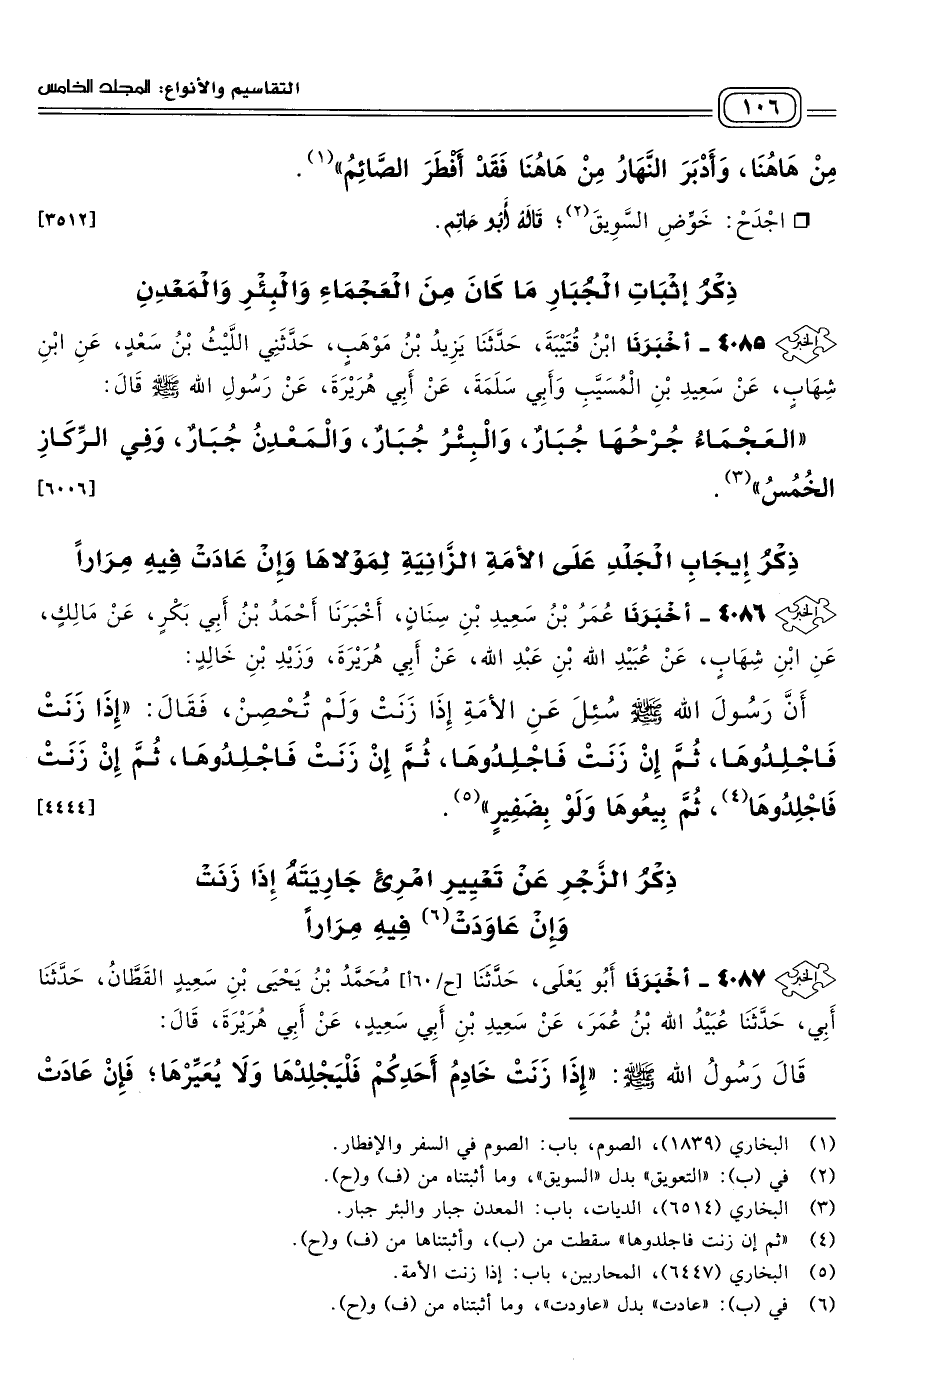 ١٠٦ التقاسيم والأنواع: المجلد الخامس
مِنْ هَاهُنَا، وَأَدْبَرَ النَّهَارُ مِنْ هَاهُنَا فَقَدْ أَفْطَرَ الصَّائِمُ»(١).
❒ اجْدَحْ: خَوِّضِ السَّوِيقَ(٢)؛ قَالَهُ أَبُو حَاتِم. [٣٥١٢]
ذِكْرُ إِثْبَاتِ الْجُبَارِ مَا كَانَ مِنَ الْعَجْمَاءِ وَالْبِئْرِ وَالْمَعْدِنِ
٤٠٨٥ - أَخْبَرَنَا ابْنُ قُتَيْبَةَ، حَدَّثَنَا يَزِيدُ بْنُ مَوْهَبٍ، حَدَّثَنِي اللَّيْثُ بْنُ سَعْدٍ، عَنِ ابْنِ
شِهَابٍ، عَنْ سَعِيدِ بْنِ الْمُسَيَّبِ وَأَبِي سَلَمَةَ، عَنْ أَبِي هُرَيْرَةَ، عَنْ رَسُولِ الله ﷺ قَالَ:
«الْعَجْمَاءُ جُرْحُهَا جُبَارٌ، وَالْبِئْرُ جُبَارٌ، وَالْمَعْدِنُ جُبَارٌ، وَفِي الرِّكَازِ
الخُمُسُ»(٣). [٦٠٠٦]
ذِكْرُ إِيجَابِ الْجَلْدِ عَلَى الأَمَةِ الزَّانِيَةِ لِمَوْلاهَا وَإِنْ عَادَتْ فِيهِ مِرَاراً
٤٠٨٦ - أَخْبَرَنَا عُمَرُ بْنُ سَعِيدِ بْنِ سِنَانٍ، أَخْبَرَنَا أَحْمَدُ بْنُ أَبِي بَكْرٍ، عَنْ مَالِكٍ،
عَنِ ابْنِ شِهَابٍ، عَنْ عُبَيْدِ الله بْنِ عَبْدِ الله، عَنْ أَبِي هُرَيْرَةَ، وَزَيْدِ بْنِ خَالِدٍ:
أَنَّ رَسُولَ الله ﷺ سُئِلَ عَنِ الأَمَةِ إِذَا زَنَتْ وَلَمْ تُحْصِنْ، فَقَالَ: «إِذَا زَنَتْ
فَاجْلِدُوهَا، ثُمَّ إِنْ زَنَتْ فَاجْلِدُوهَا، ثُمَّ إِنْ زَنَتْ فَاجْلِدُوهَا، ثُمَّ إِنْ زَنَتْ
فَاجْلِدُوهَا(٤)، ثُمَّ بِيعُوهَا وَلَوْ بِضَفِيرٍ»(٥). [٤٤٤٤]
ذِكْرُ الزَّجْرِ عَنْ تَعْيِيرِ امْرِئٍ جَارِيَتَهُ إِذَا زَنَتْ
وَإِنْ عَاوَدَتْ(٦) فِيهِ مِرَاراً
٤٠٨٧ - أَخْبَرَنَا أَبُو يَعْلَى، حَدَّثَنَا [ح/٦٠أ] مُحَمَّدُ بْنُ يَحْيَى بْنِ سَعِيدٍ القَطَّانُ، حَدَّثَنَا
أَبِي، حَدَّثَنَا عُبَيْدُ الله بْنُ عُمَرَ، عَنْ سَعِيدِ بْنِ أَبِي سَعِيدٍ، عَنْ أَبِي هُرَيْرَةَ، قَالَ:
قَالَ رَسُولُ الله ﷺ: «إِذَا زَنَتْ خَادِمُ أَحَدِكُمْ فَلْيَجْلِدْهَا وَلَا يُعَيِّرْهَا؛ فَإِنْ عَادَتْ
(١) البخاري (١٨٣٩)، الصوم، باب: الصوم في السفر والإفطار.
(٢) في (ب): «التعويق» بدل «السويق»، وما أثبتناه من (ف) و(ح).
(٣) البخاري (٦٥١٤)، الديات، باب: المعدن جبار والبئر جبار.
(٤) «ثم إن زنت فاجلدوها» سقطت من (ب)، وأثبتناها من (ف) و(ح).
(٥) البخاري (٦٤٤٧)، المحاربين، باب: إذا زنت الأمة.
(٦) في (ب): «عادت» بدل «عاودت»، وما أثبتناه من (ف) و(ح).